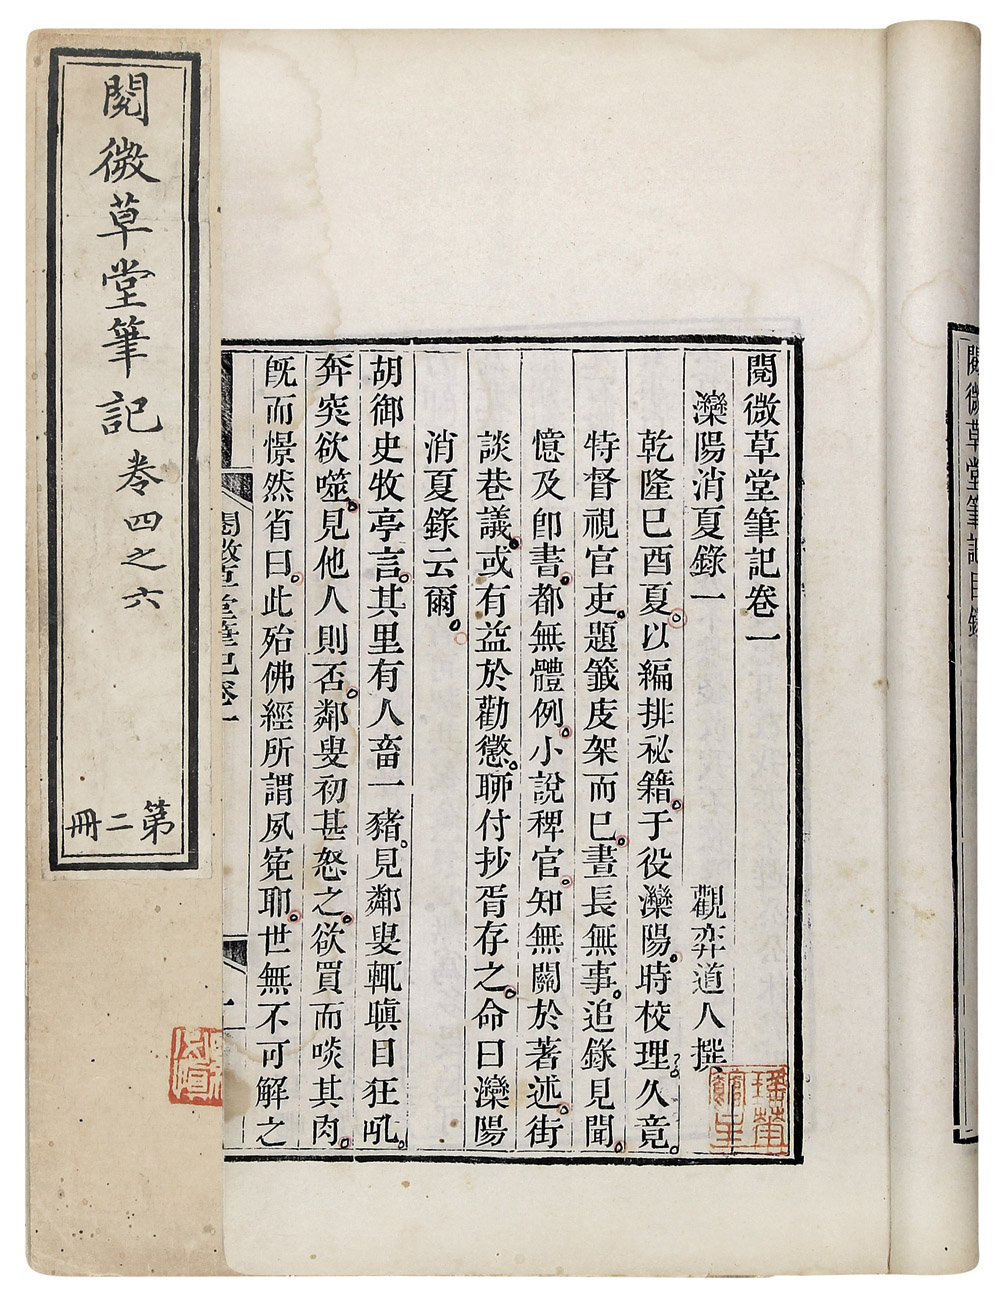 閱微草堂筆記 卷四之六
第二冊
閱微草堂筆記卷一
灤陽消夏錄一 觀弈道人撰
乾隆己酉夏。以編排秘籍。于役灤陽。時校理久竟。
特督視官吏。題籤庋架而已。晝長無事。追錄見聞。
憶及卽書。都無體例。小說稗官。知無關於著述。街
談巷議。或有益於勸懲。聊付抄胥存之。命曰灤陽
消夏錄云爾。
胡御史牧亭言。其里有人畜一豬。見鄰叟輒瞋目狂吼。
奔突欲噬。見他人則否。鄰叟初甚怒之。欲買而啖其肉。
旣而憬然省曰。此殆佛經所謂夙冤耶。世無不可解之
閱微草堂筆記卷一
閱微草堂筆記目錄